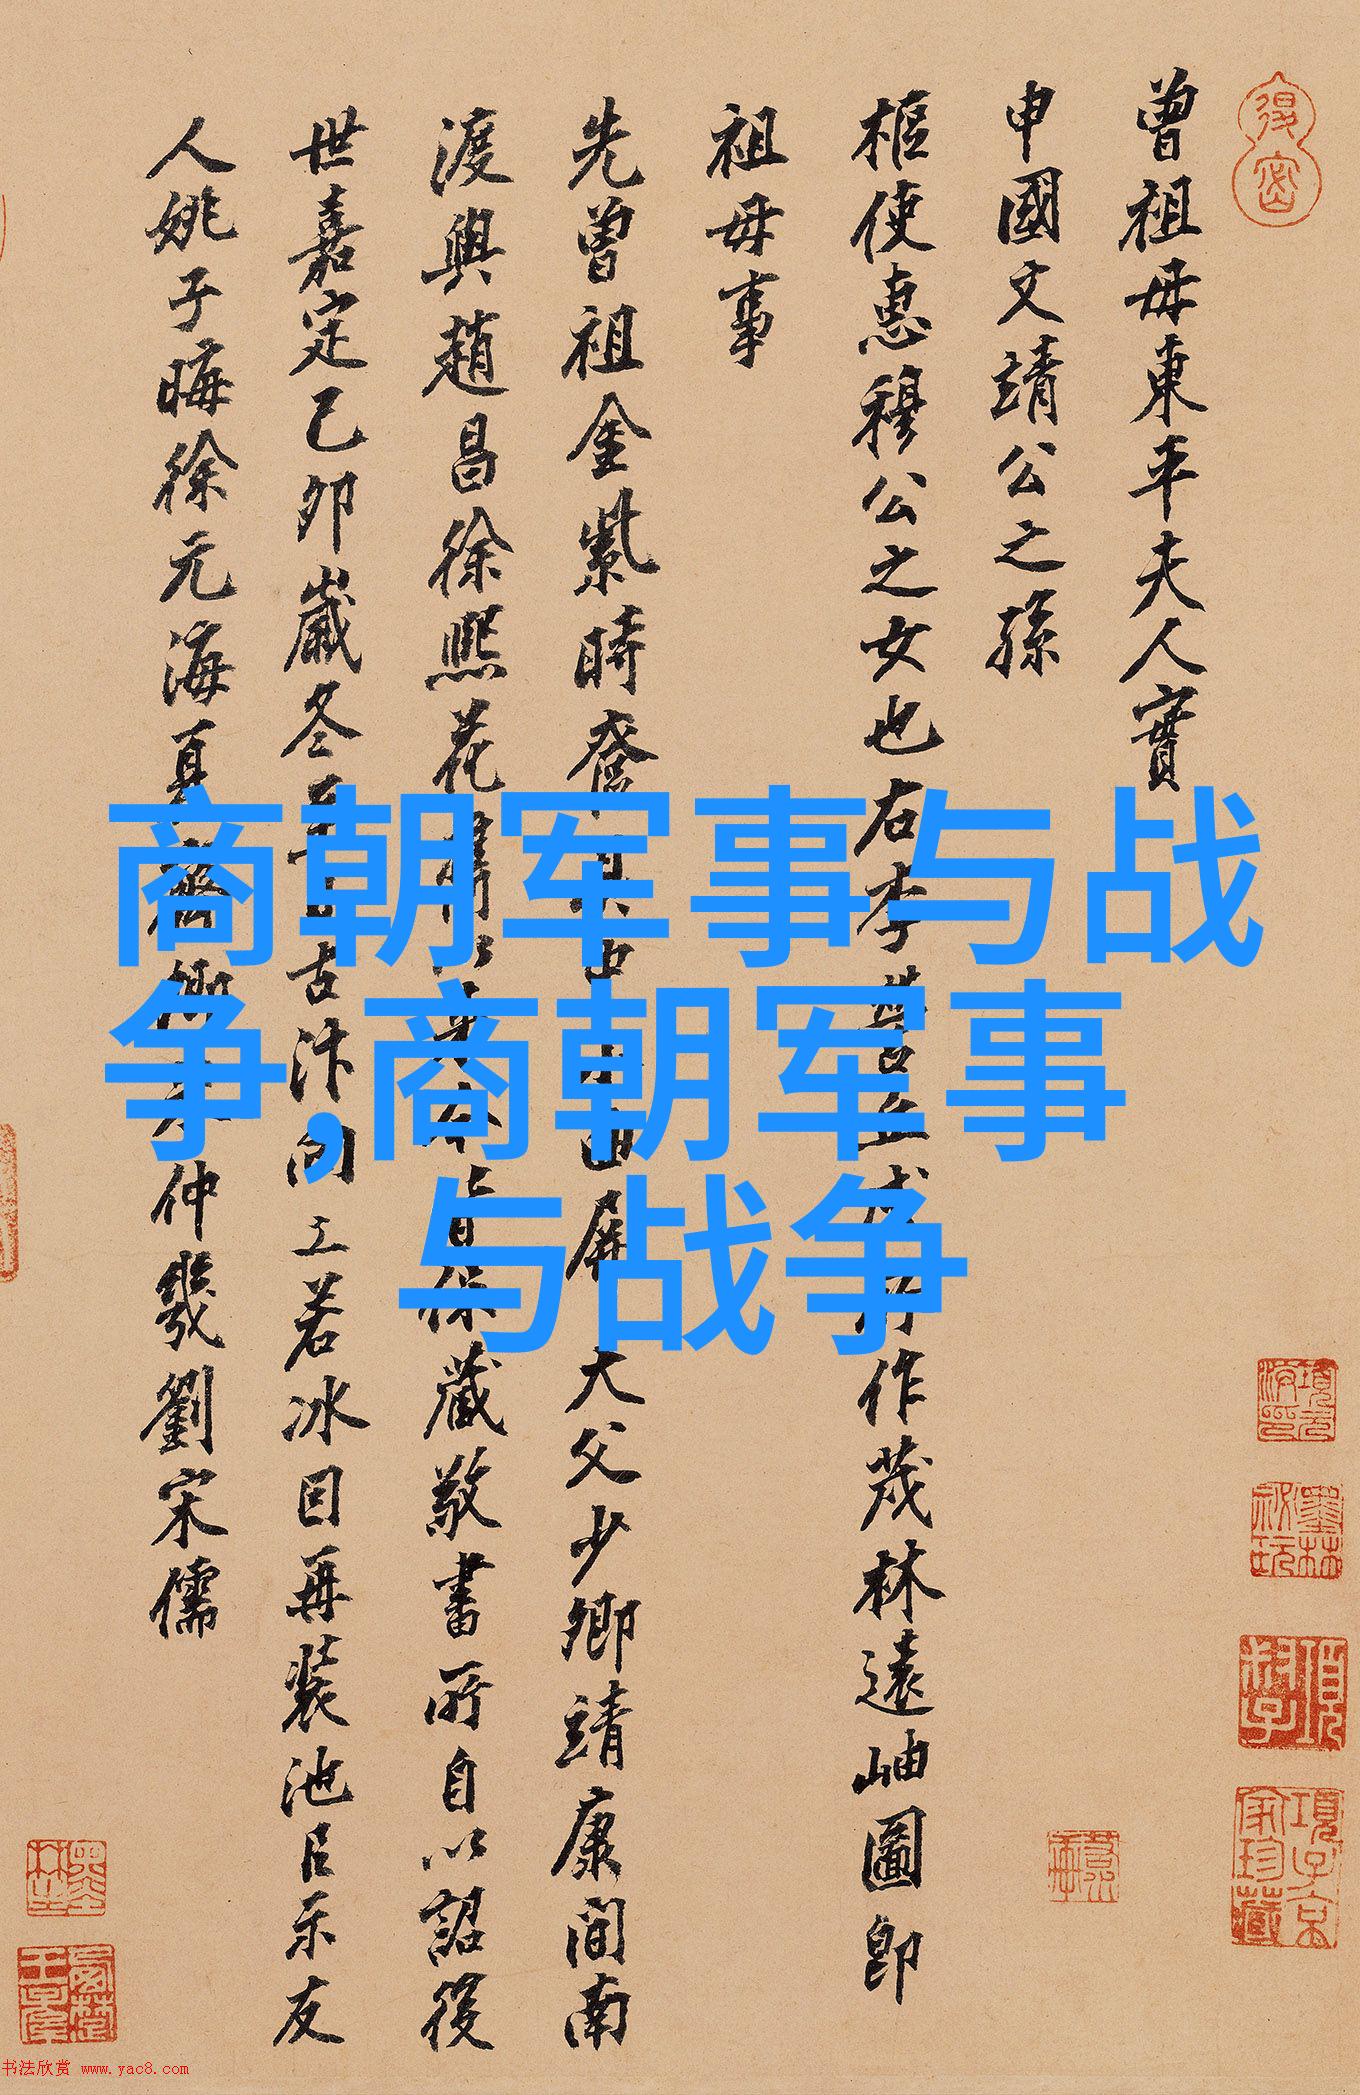 曾祖母東平夫人實
申國文靖公之孫
樞使惠穆公之女也右李營丘作茂林遠岫圖即
祖母事
先曾祖金紫時奩具中 屏大父少卿靖康間南
渡與趙昌徐熙花 保藏敬書所自以詔後
世嘉定己卯歲冬至 古汴向士若冰因再裝池呂示友
人姚子晦徐元海 仲幾劉宋儒
商朝军事与战
争,商朝军事
与战争
书法欣赏 www.yac8.com